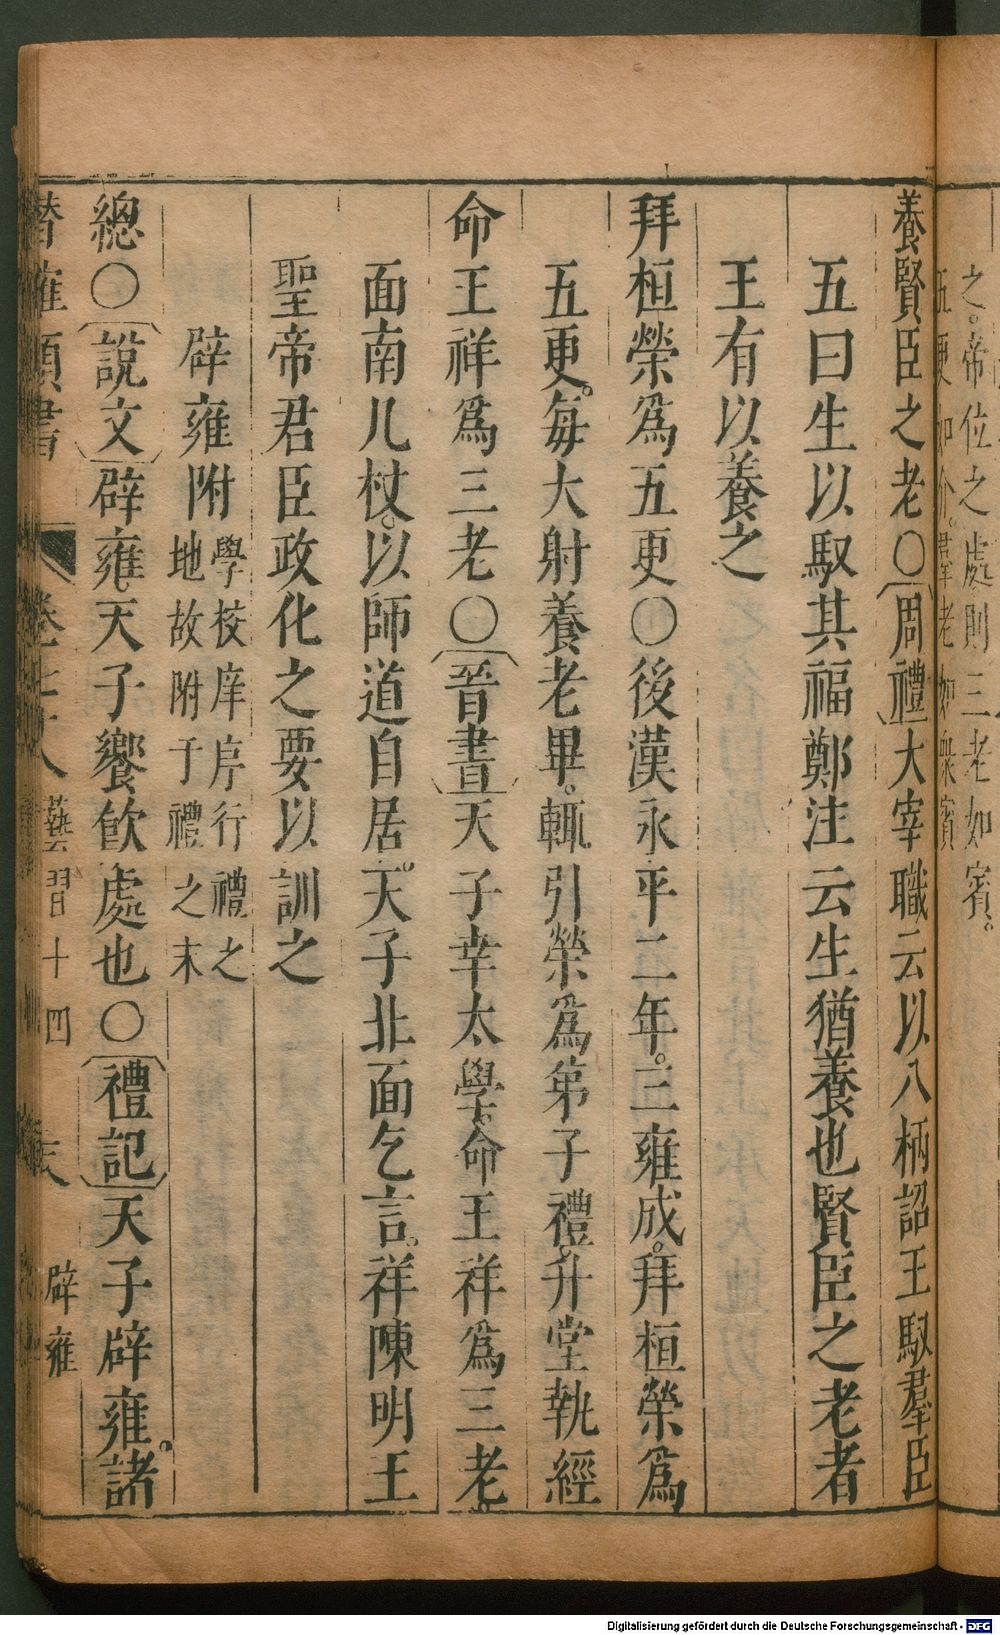 之。帝位之處則三老如賓。
五更如介。羣老如衆賓
養賢臣之老〇周禮大宰職云以八柄詔王馭羣臣
五曰生以馭其福鄭注云生猶養也賢臣之老者
王有以養之
拜桓榮爲五更〇後漢永平二年。三雍成。拜桓榮爲
五更。每大射養老畢。輒引榮爲弟子禮。升堂執經
命王祥爲三老〇晉書天子幸太學。命王祥爲三老。
面南几杖。以師道自居。天子北面乞言。祥陳明王
聖帝君臣政化之要以訓之
辟雍附
學校庠序行禮之
地故附于禮之末
總〇說文辟雍天子饗飮處也〇禮記天子辟雍。諸
潛確類書
藝習十四
辟雍
Digitalisierung gefördert durch die Deutsche Forschungsgemeinschaft - DFG